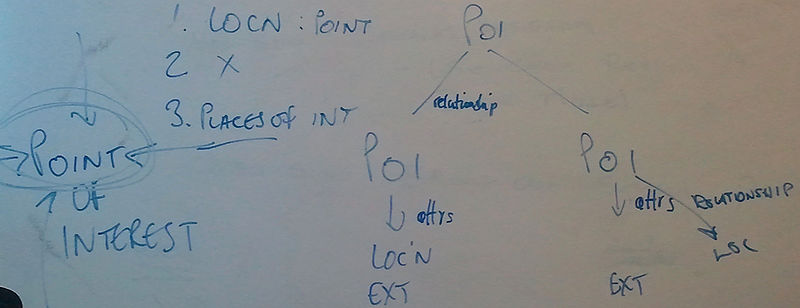 1. LOCN : POINT
2 X
3. PLACES OF INT
POINT
OF
INTEREST
POI
relationship
POI
attrs
LOC'N
EXT
POI
attrs RELATIONSHIP
LOC
EXT